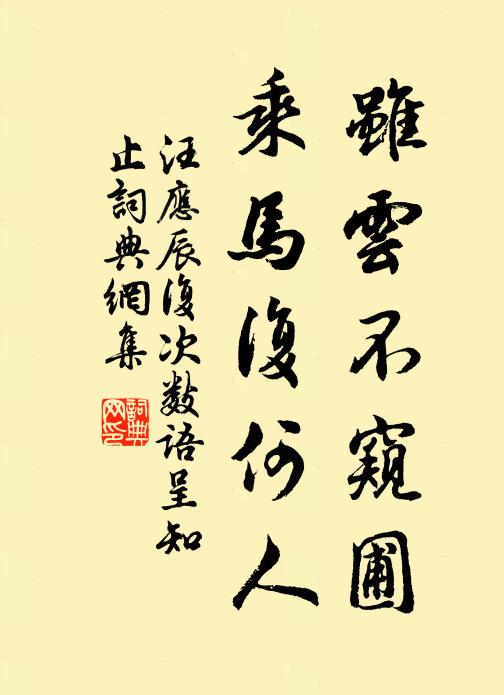 雖雲不窺圃
乘馬復何人
汪應辰復次數語呈知
止詞典網集
詞典
网印